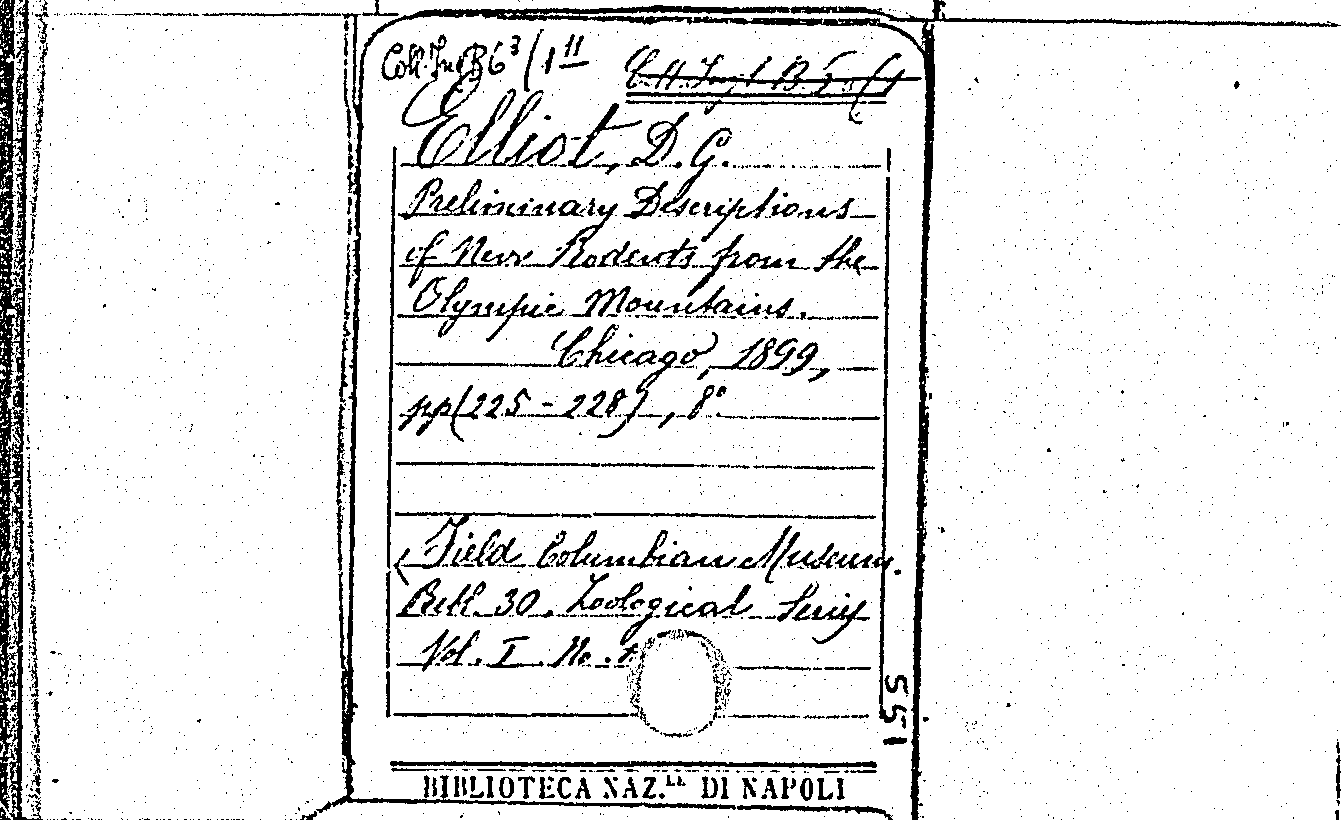 Coll. Ingl B 6³/1 11
Elliot, D. G.
Preliminary Descriptions
of New Rodents from the
Olympic Mountains.
Chicago, 1899,
pp(225-228), 8°
(Field Columbian Museum.
30. Zoological Series
Vol. I. No.
551
BIBLIOTECA NAZ.LE DI NAPOLI